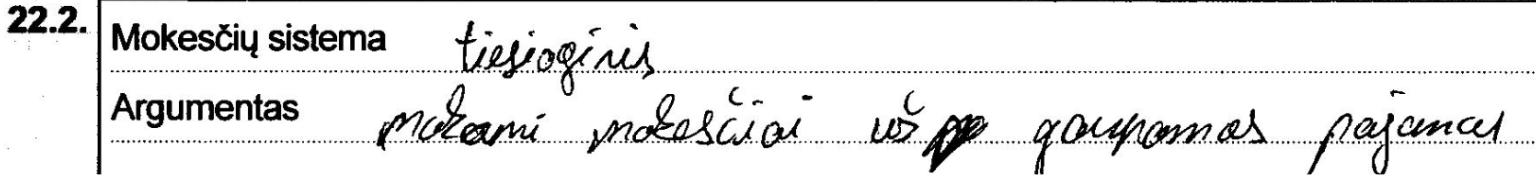 22.2. Mokesčių sistema tiesioginis
Argumentas mokami mokesčiai už gaunamas pajamas